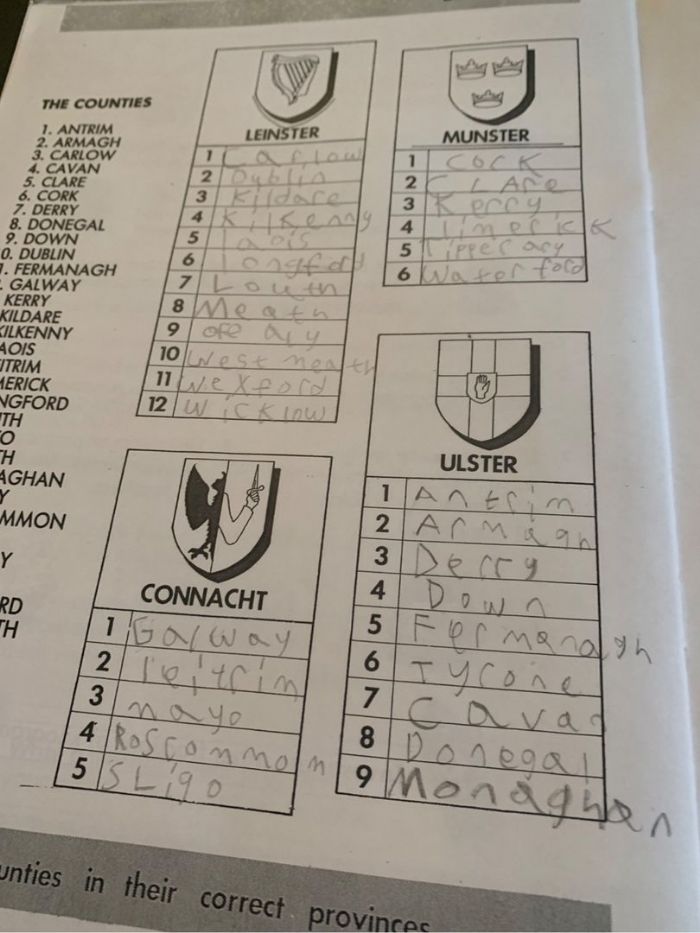 THE COUNTIES
1. ANTRIM
2. ARMAGH
3. CARLOW
4. CAVAN
5. CLARE
6. CORK
7. DERRY
8. DONEGAL
9. DOWN
0. DUBLIN
. FERMANAGH
. GALWAY
KERRY
KILDARE
KILKENNY
AOIS
ITRIM
MERICK
NGFORD
TH
O
H
AGHAN
Y
MMON
Y
RD
TH
LEINSTER
1 Carlow
2 Dublin
3 Kildare
4 KilKenny
5 laois
6 longford
7 Louth
8 Meath
9 ofe aly
10 West meath
11 WeXford
12 Wicklow
MUNSTER
1 CorK
2 CLARe
3 Kerry
4 limericK
5 Tipperary
6 Waterford
CONNACHT
1 Galway
2 leitrim
3 mayo
4 RosCommon
5 SLigo
ULSTER
1 Antrim
2 Armagh
3 Derry
4 Down
5 Fermanagh
6 Tyrone
7 Cavan
8 Donegal
9 Monaghan
unties in their correct provinces